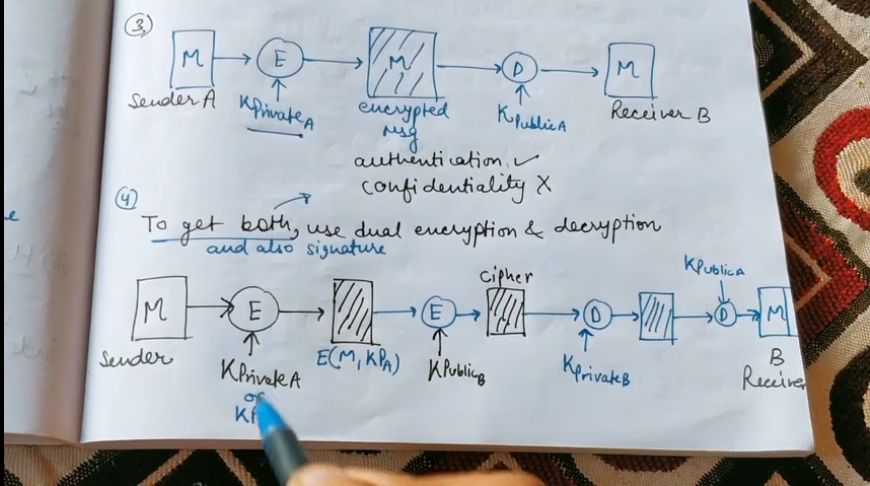 ③
M E M D M
Sender A KPrivateA encrypted msg KPublicA Receiver B
authentication ✓
confidentiality X
④
To get both, use dual encryption & decryption
and also signature
KPublicA
cipher
M E E D D M
Sender KPrivateA E(M, KPA) KPublicB KPrivateB B Receiver
or